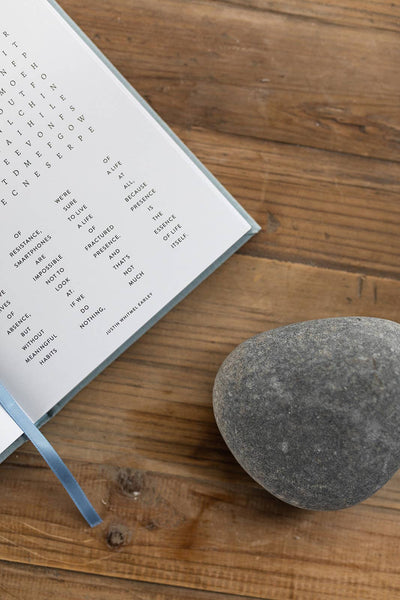 T D M E F G O W
E G N E S E R P E
OF
ABSENCE,
BUT
WITHOUT
MEANINGFUL
HABITS
OF
RESISTANCE,
SMARTPHONES
ARE
IMPOSSIBLE
NOT TO
LOOK
AT.
IF WE
DO
NOTHING,
WE'RE
SURE
TO LIVE
A LIFE
OF
FRACTURED
PRESENCE,
AND
THAT'S
NOT
MUCH
OF
A LIFE
AT
ALL,
BECAUSE
PRESENCE
IS
THE
ESSENCE
OF LIFE
ITSELF.
JUSTIN WHITMEL EARLEY